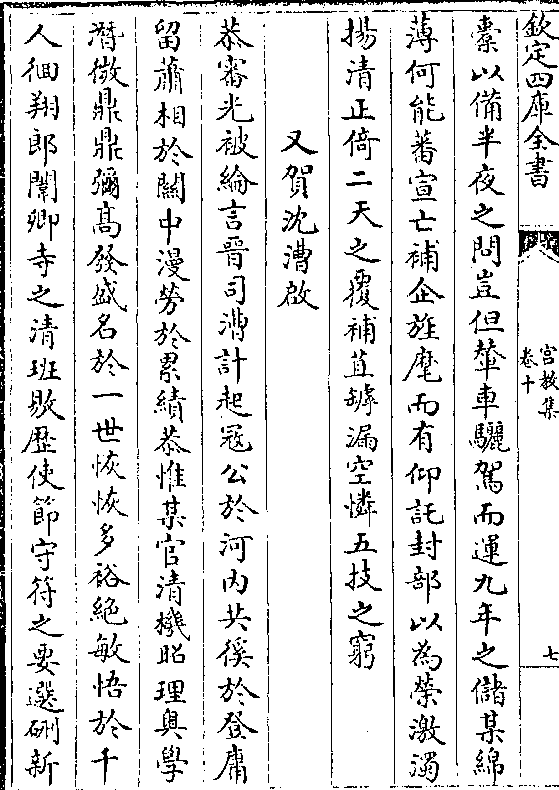 欽定四庫全書
宫教集
卷十
七
橐以備半夜之問豈但輦車驪駕而運九年之儲某綿
薄何能蕃宣亡補企旌麾而有仰託封部以為榮激濁
揚清正倚二天之覆補苴罅漏空憐五技之窮
又賀沈漕啟
恭審光被綸言晉司漕計起冦公於河内共徯於登庸
留蕭相於關中漫勞於累績恭惟某官清機昭理奥學
潛微鼎鼎彌髙發盛名於一世恢恢多裕絶敏悟於千
人徊翔郎闈卿寺之清班敭歴使節守符之要選硎新